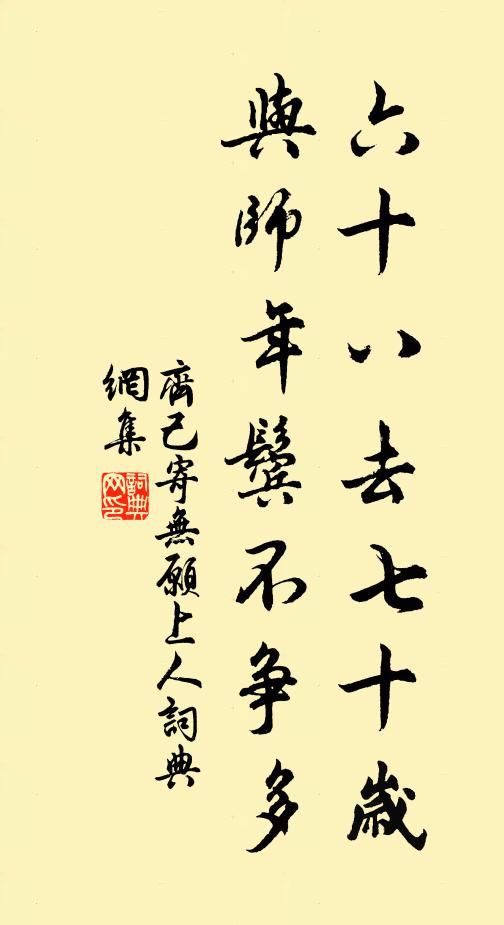 六十八去七十歲
與師年鬢不争多
齊己寄無願上人詞典
網集
詞典
网印